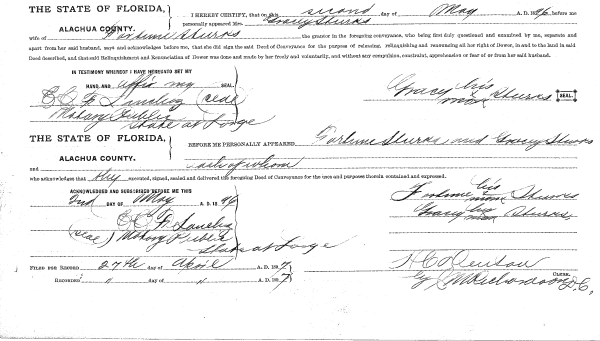 THE STATE OF FLORIDA,
ALACHUA COUNTY.
I HEREBY CERTIFY, that on this second day of May A. D. 1896 before me
personally appeared Mrs. Gracy Shurks
wife of Fortune Shurks the grantor in the foregoing conveyance, who being first duly questioned and examined by me, separate and
apart from her said husband, says and acknowledges before me, that she did sign the said Deed of Conveyance for the purpose of releasing, relinquishing and renouncing all her right of Dower, in and to the land in said
Deed described, and that said Relinquishment and Renunciation of Dower was done and made by her freely and voluntarily, and without any compulsion, constraint, apprehension or fear of or from her said husband.
IN TESTIMONY WHEREOF I HAVE HEREUNTO SET MY
HAND, AND affix my SEAL.
(seal)
Notary Public
State at Large
Gracy his mark Shurks SEAL.
THE STATE OF FLORIDA,
ALACHUA COUNTY.
BEFORE ME PERSONALLY APPEARED Fortune Shurks, and Gracy Shurks
and each of whom
who acknowledges that they executed, signed, sealed and delivered the foregoing Deed of Conveyance for the uses and purposes therein contained and expressed.
ACKNOWLEDGED AND SUBSCRIBED BEFORE ME THIS
2nd DAY OF May A. D. 1896
(seal) Notary Public
State at Large
Fortune his mark Shurks
Gracy his mark Shurks
FILED FOR RECORD 27th day of April A. D. 1897
RECORDED " day of " A. D. 1897
H C Denton CLERK.
By Richardson D. C.